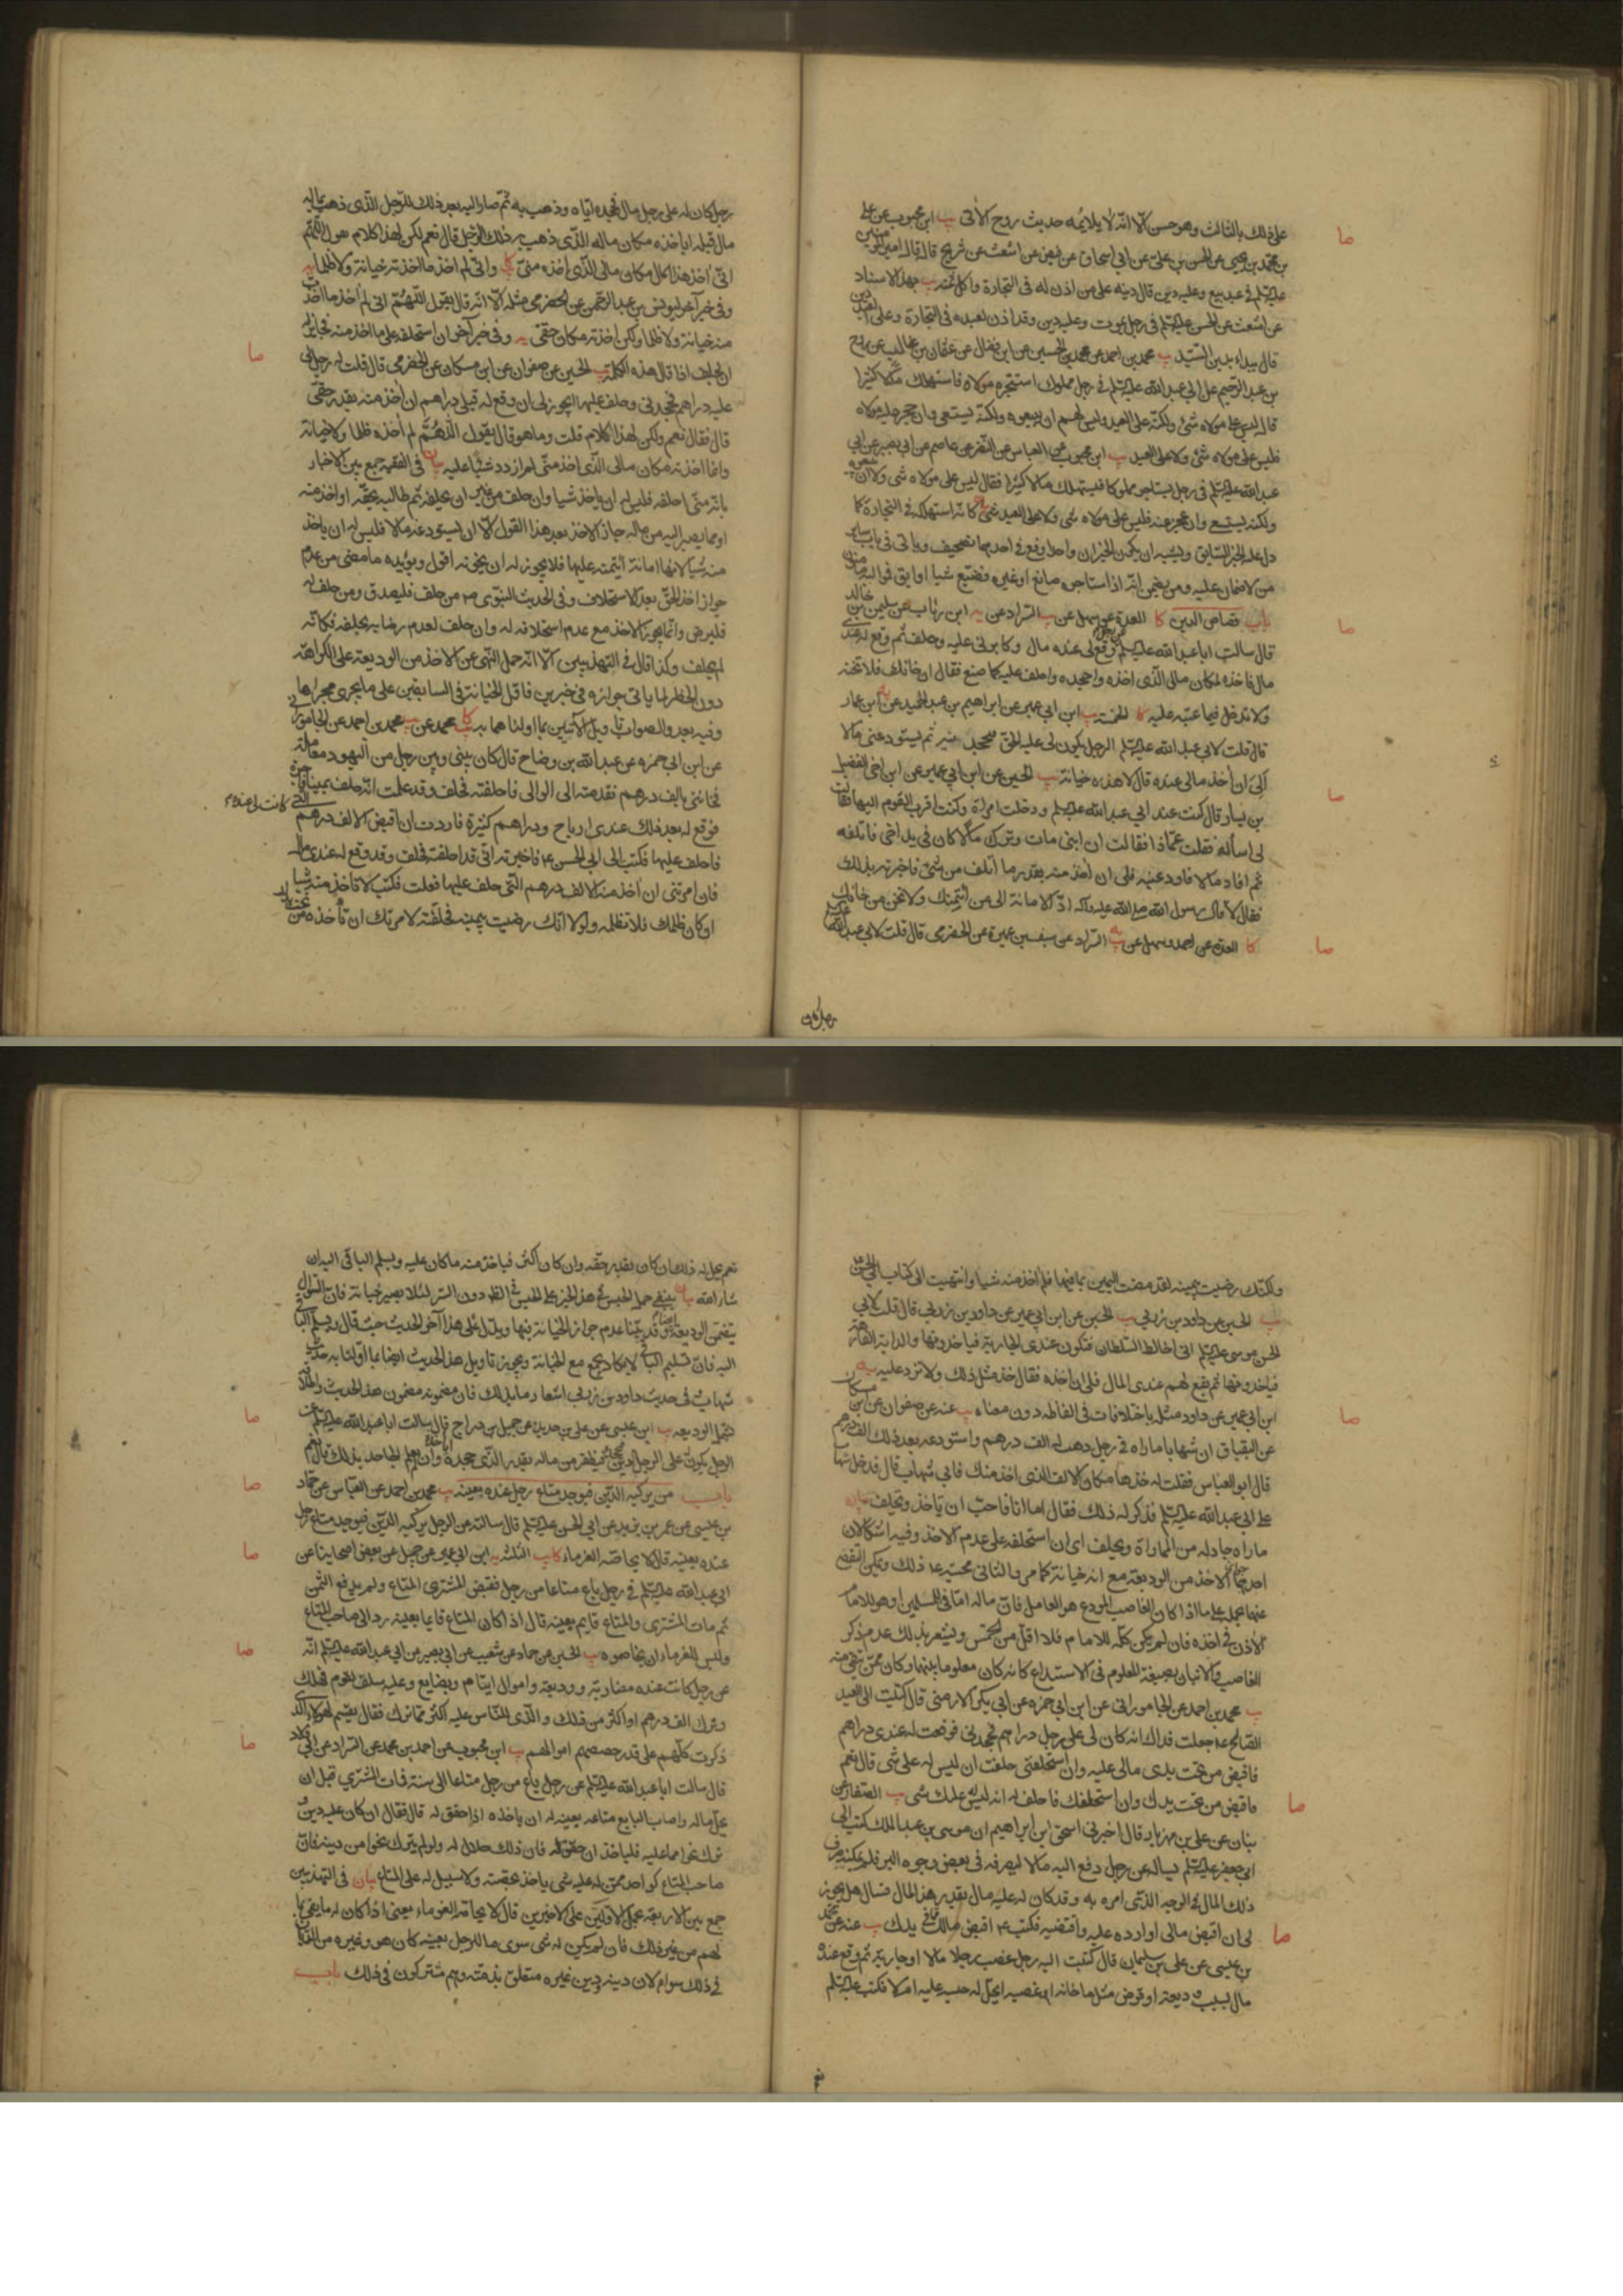 على ذلك بالثالث وهو حسن الا انه لا يلائمه حديث روح الاتي يب ابن محبوب عن علي
بن محمد بن يحيى عن الحسن بن علي عن ابي اسحاق عن فيض عن اشعث عن شريح قال قال امير المؤمنين
عليه السلم في عبد بيع وعليه دين قال دينه على من اذن له في التجارة واكل ثمنه يب بهذا الاسناد
عن اشعث عن الحسن عليه السلم في رجل يموت وعليه دين وقد اذن لعبده في التجارة وعلى العبد دين
قال يبداء بدين السيد يب محمد بن احمد عن محمد بن الحسين عن ابن فضال عن عن روح
بن عبد الرحيم عن ابي عبد الله عليه السلم في رجل مملوك استتجره مولاه فاستهلك مالا كثيرا
قال ليس على مولاه شئ ولكنه على العبد وليس لهم ان يبيعوه ولكنه يستسعى وان حجر عليه مولاه
فليس على مولاه شئ ولا على العبد يب ابن محبوب عن العباس عن النضر عن عاصم عن ابي بصير عن ابي
عبد الله عليه السلم في رجل يستاجر مملوكا فيستهلك مالا كثيرا فقال ليس على مولاه شئ ولا ان يبيعوه
ولكنه يستسعى وان عجز عنه فليس على مولاه شئ ولا على العبد شئ كانه استهلكه في التجارة كما
دل عليه الخبر السابق ويشبه ان يكون الخبران واحدا وقع في احدهما تصحيف وياتي في باب ساير
من لا ضمان عليه ومن يضمن انه اذا استاجر صانع او غيره فضيع شيا او ابق فمواليه ضامنون
باب قصاص الدين كا العدة عن سهل عن يب السراد عن يه ابن رئاب عن سليمن بن خالد
قال سالت ابا عبد الله عليه السلم عن رجل وقع لي عنده مال وكابرني عليه وحلف ثم وقع له عندي
مال فاخذه لمكان مالي الذي اخذه واجحده واحلف عليه كما صنع فقال ان خانك فلا تخنه
ولا تدخل فيما عبته عليه كا الخمسة يب ابن ابي عمير عن ابراهيم بن عبد الحميد عن يه ابن عمار
قال قلت لابي عبد الله عليه السلم الرجل يكون لي عليه الحق فيجحدنيه ثم يستودعني مالا
الي ان اخذ مالي عنده قال لا هذه خيانة يب الحسين عن ابن ابي عمير عن ابن اخي الفضيل
بن يسار قال كنت عند ابي عبد الله عليه السلم ودخلت امراة وكنت اقرب القوم اليها فقالت
لي اسأله فقلت عماذا فقالت ان ابني مات وترك مالا كان في يد اخي فاتلفه
ثم افاد مالا فاودعنيه فلي ان اخذ منه بقدر ما اتلف من شئ فاخبرته بذلك
فقال لا قال رسول الله صلى الله عليه واله اد الامانة الى من ائتمنك ولا تخن من خانك
كا العدة عن احمد وسهل عن يه السراد عن سيف بن عميرة عن الحضرمي قال قلت لابي عبد الله عليه السلم
رجل كان
رجل كان له على رجل مال فجحده اياه وذهب به ثم صار اليه بعد ذلك للرجل الذي ذهب بماله
مال قبله اياخذه مكان ماله الذي ذهب به ذلك الرجل قال نعم لكن لهذا كلام هو اللهم
اني اخذ هذا المال مكان مالي الذي اخذه مني كا واني لم اخذ ما اخذته خيانة ولا ظلما يه
وفي خبر آخر ليونس بن عبد الرحمن عن الحضرمي مثله الا انه قال يقول اللهم اني لم اخذ ما اخذت
منه خيانة ولا ظلما ولكن اخذته مكان حقي يه وفي خبر آخر ان استحلفه على ما اخذ منه فجايز له
ان يحلف اذا قال هذه الكلمة يب الحسين عن صفوان عن ابن مسكان عن الحضرمي قال قلت له رجل لي
عليه دراهم فجحدني وحلف عليها ايجوز لي ان وقع له قبلي دراهم ان اخذ منه بقدر حقي
قال فقال نعم ولكن لهذا كلام قلت وما هو قال يقول اللهم لم اخذه ظلما ولا خيانة
وانما اخذته مكان مالي الذي اخذ مني لم ازدد شيئا عليه بيان في الفقيه جمع بين الاخبار
بانه متى احلفه فليس له ان ياخذ شيا وان حلف من غير ان يحلفه ثم طالبه بحقه او اخذ منه
او مما يصير اليه من ماله جاز الاخذ بعد هذا القول الا ان يستودعه مالا فليس له ان ياخذ
منه شيا لانها امانة ائتمنه عليها فلا يجوز له ان يخونه اقول ويؤيده ما مضى من عدم
جواز اخذ الحق بعد الاستحلاف وفي الحديث النبوي ص من حلف فليصدق ومن حلف له
فليرض وانما يجوز الاخذ مع عدم استحلافه له وان حلف لعدم رضايه بحلفه فكانه
لم يحلف وكذا قال في التهذيبين الا انه حمل النهي عن الاخذ من الوديعة على الكراهة
دون الحظر لما ياتي جوازه في خبرين فاقل الخيانة في السابقين على ما يجري مجراها
وفيه بعد والصواب تاويل الاتيين بما اولناهما به كا محمد عن يب محمد بن احمد عن الجاموراني
عن ابن ابي حمزه عن عبد الله بن وضاح قال كان بيني وبين رجل من اليهود معاملة
فخانني بالف درهم فقدمته الى الوالي فاحلفته فحلف وقد علمت انه حلف يمينا فاجرة
فوقع له بعد ذلك عندي ارباح ودراهم كثيرة فاردت ان اقبض الالف درهم التي كانت لي عنده
فاحلف عليها فكتبت الى ابي الحسن ع فاخبرته اني قد احلفته فحلف وقد وقع له عندي مال
فان امرتني ان اخذ منه الالف درهم التي حلف عليها فعلت فكتب لا تاخذ منه شيا
ان كان ظلمك فلا تظلمه ولولا انك رضيت بيمينه فحلفته لامرتك ان تاخذه من تحت يدك
ولكنك رضيت بيمينه لقد مضت اليمين بما فيها فلم اخذ منه شيا وانتهيت الى كتاب ابي الحسن ع
يب الحسن عن داود بن زربي يب الحسين عن ابن ابي عمير عن داود بن زربي قال قلت لابي
الحسن موسى عليه السلم اني اخالط السلطان فتكون عندي الجارية فياخذونها والدابة الفارهة
فياخذونها ثم يقع لهم عندي المال فلي ان اخذه فقال خذ مثل ذلك ولا تزد عليه يه
ابن ابي عمير عن داود مثله باختلافات في الفاظه دون معناه يب عنه عن صفوان عن ابن مسكان
عن البقباق ان شهابا ماراه في رجل ذهب له الف درهم واستودعه بعد ذلك الف درهم
قال ابو العباس فقلت له خذها مكان الالف الذي اخذ منك فابى شهاب قال فدخل شهاب
على ابي عبد الله عليه السلم فذكر له ذلك فقال اما انا فاحب ان تاخذ وتحلف بيان
ماراه جادله من المماراة وتحلف اي ان استحلفه على عدم الاخذ وفيه اشكالان
احدهما جواز الاخذ من الوديعة مع انه خيانة كما مر والثاني محبته ع ذلك ويمكن التفصي
عنهما بحمله على ما اذا كان الغاصب المودع هو العامل فان ماله اما فئ للمسلمين او هو للامام
الاذن في اخذه فان لم يكن كله للامام فلا اقل من الخمس ويشعر بذلك عدم ذكر
الغاصب والاتيان بصيغة المعلوم في الاستيداع كانه كان معلوما بينهما وكان ممن يتقى منه
يب محمد بن احمد عن الجاموراني عن ابن ابي حمزه عن ابي بكر الارمني قال كتبت الى العبد
الصالح ع جعلت فداك انه كان لي على رجل دراهم فجحدني فوقعت له عندي دراهم
فاقبض من تحت يدي مالي عليه وان استحلفني حلفت ان ليس له علي شئ قال نعم
فاقبض من تحت يدك وان استحلفك فاحلف له انه ليس له عليك شئ يب الصفار عن
بنان عن علي بن مهزيار قال اخبرني اسحق ابن ابراهيم ان موسى بن عبد الملك كتب الى
ابي جعفر عليه السلم يساله عن رجل دفع اليه مالا ليصرفه في بعض وجوه البر فلم يمكنه صرف
ذلك المال في الوجه الذي امره به وقد كان له عليه مال بقدر هذا المال فسال هل يجوز
لي ان اقبض مالي او ارده عليه واقتضيه فكتب ع اقبض مالك مما في يدك يب عنه عن محمد
بن عيسى عن علي بن سليمان قال كتبت اليه رجل غصب رجلا مالا او جارية ثم وقع عنده
مال بسبب وديعة او قرض مثل ما خانه او غصبه ايحل له حبسه عليه ام لا فكتب عليه السلم
نعم
نعم يحل له ذلك ان كان بقدر حقه وان كان اكثر فياخذ منه ما كان عليه ويسلم الباقي اليه ان
شاء الله بيان ينبغي حمل الحبس في هذا الخبر على الحبس في الظهر دون السر لئلا يصير خيانة فان السؤال
يتضمن الوديعة ايضا وقد بينا عدم جواز الخيانة فيها ويدل على هذا آخر الحديث حيث قال ويسلم الباقي
اليه فان تسليم الباقي لا يكاد يجتمع مع الخيانة ويجوز تاويل هذا الحديث ايضا بما اولنا به حديث
شهاب في حديث داود بن زربي اشعار ما بذلك فان مضمونه مضمون هذا الحديث واطلاقه
يشمل الوديعه يب ابن عيسى عن علي بن حديد عن جميل بن دراج قال سالت ابا عبد الله عليه السلم عن
الرجل يكون له على الرجل الدين فيجحده فيظفر من ماله بقدر الذي جحده اياخذه وان لم يعلم الجاحد بذلك قال نعم
باب من يركبه الدين فيوجد متاع رجل عنده بعينه يب محمد بن احمد عن العباس عن حماد
بن عيسى عن عمر بن يزيد عن ابي الحسن عليه السلم قال سالته عن الرجل يركبه الدين فيوجد متاع رجل
عنده بعينه قال لا يحاصه الغرماء كا يب الثلثة ابن ابي عمير عن جميل عن بعض اصحابنا عن
ابي عبد الله عليه السلم في رجل باع متاعا من رجل فقبض المشتري المتاع ولم يدفع الثمن
ثم مات المشتري والمتاع قايم بعينه قال اذا كان المتاع قايما بعينه رد الى صاحب المتاع
وليس للغرماء ان يحاصوه يب الحسين عن حماد عن شعيب عن ابي بصير عن ابي عبد الله عليه السلم انه
عن رجل كانت عنده مضاربة ووديعة واموال ايتام وبضايع وعليه سلف لقوم فهلك
وترك الف درهم او اكثر من ذلك والذي للناس عليه اكثر مما ترك فقال يقسم لهؤلاء الذي
ذكرت كلهم على قدر حصصهم اموالهم يب ابن محبوب عن احمد بن محمد عن السراد عن ابي ولاد
قال سالت ابا عبد الله عليه السلم عن رجل باع من رجل متاعا الى سنة فمات المشتري قبل ان
يحل ماله واصاب البايع متاعه بعينه له ان ياخذه اذا حقق له قال فقال ان كان عليه دين و
ترك نحوا مما عليه فلياخذ ان حقق له فان ذلك حلال له ولو لم يترك نحوا من دينه فان
صاحب المتاع كواحد ممن له عليه شئ ياخذ بحصته ولا سبيل له على المتاع بيان في التهذيبين
جمع بين الاربعة بحمل الاولين على الاخيرين قال لا يحاصه الغرماء يعني اذا كان له ما يفي بما
لهم من غير ذلك فان لم يكن له شئ سوى مال الرجل بعينه كان هو وغيره من الديان
في ذلك سواء لان دينه ودين غيره متعلق بذمته وهم مشتركون في ذلك باب